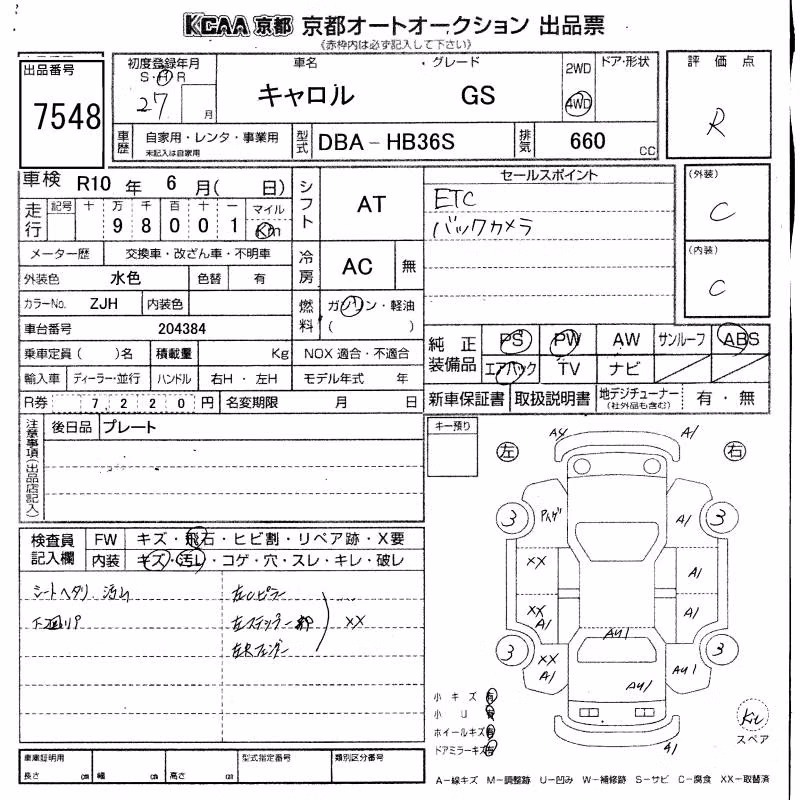 KCAA 京都 京都オートオークション 出品票
《赤枠内は必ず記入して下さい》
出品番号
7548
初度登録年月
S・H・R
27 月
車名 ・グレード
キャロル GS
2WD
4WD
ドア・形状
評価点
R
車歴 自家用・レンタ・事業用
未記入は自家用
型式 DBA-HB36S
排気 660 cc
車検 R10 年 6 月( 日)
走行 記号 十 万 千 百 十 一 マイル
98001 Km
シフト AT
セールスポイント
ETC
バックカメラ
(外装)
C
(内装)
C
メーター歴 交換車・改ざん車・不明車
外装色 水色 色替 有
冷房 AC 無
カラーNo. ZJH 内装色
燃料 ガソリン・軽油
( )
車台番号 204384
純正装備品 PS PW AW サンルーフ ABS
エアバック TV ナビ
乗車定員( )名 積載量 Kg NOX 適合・不適合
輸入車 ディーラー・並行 ハンドル 右H・左H モデル年式 年
R券 7220円 名変期限 月 日
新車保証書 取扱説明書 地デジチューナー 有・無
(社外品も含む)
注意事項(出品店記入)
後日品 プレート
キー預り
左 右
A4 A1
3 3
A1
XX A1
XX A1 A1
AU1
3 3
XX A1 AU1
AU1
A1
検査員記入欄
FW キズ・飛石・ヒビ割・リペア跡・X要
内装 キズ・汚れ・コゲ・穴・スレ・キレ・破レ
シートヘタリ 汚れ
下廻りP
左Cピラー
左ステップ
左Rフェンダー
XX
小キズ 有
小U 有
ホイールキズ 有
ドアミラーキズ 有
Kit
スペア
車庫証明用
長さ (cm) 幅 (cm) 高さ (cm)
型式指定番号
類別区分番号
A-線キズ M-調整跡 U-凹み W-補修跡 S-サビ C-腐食 XX-取替済